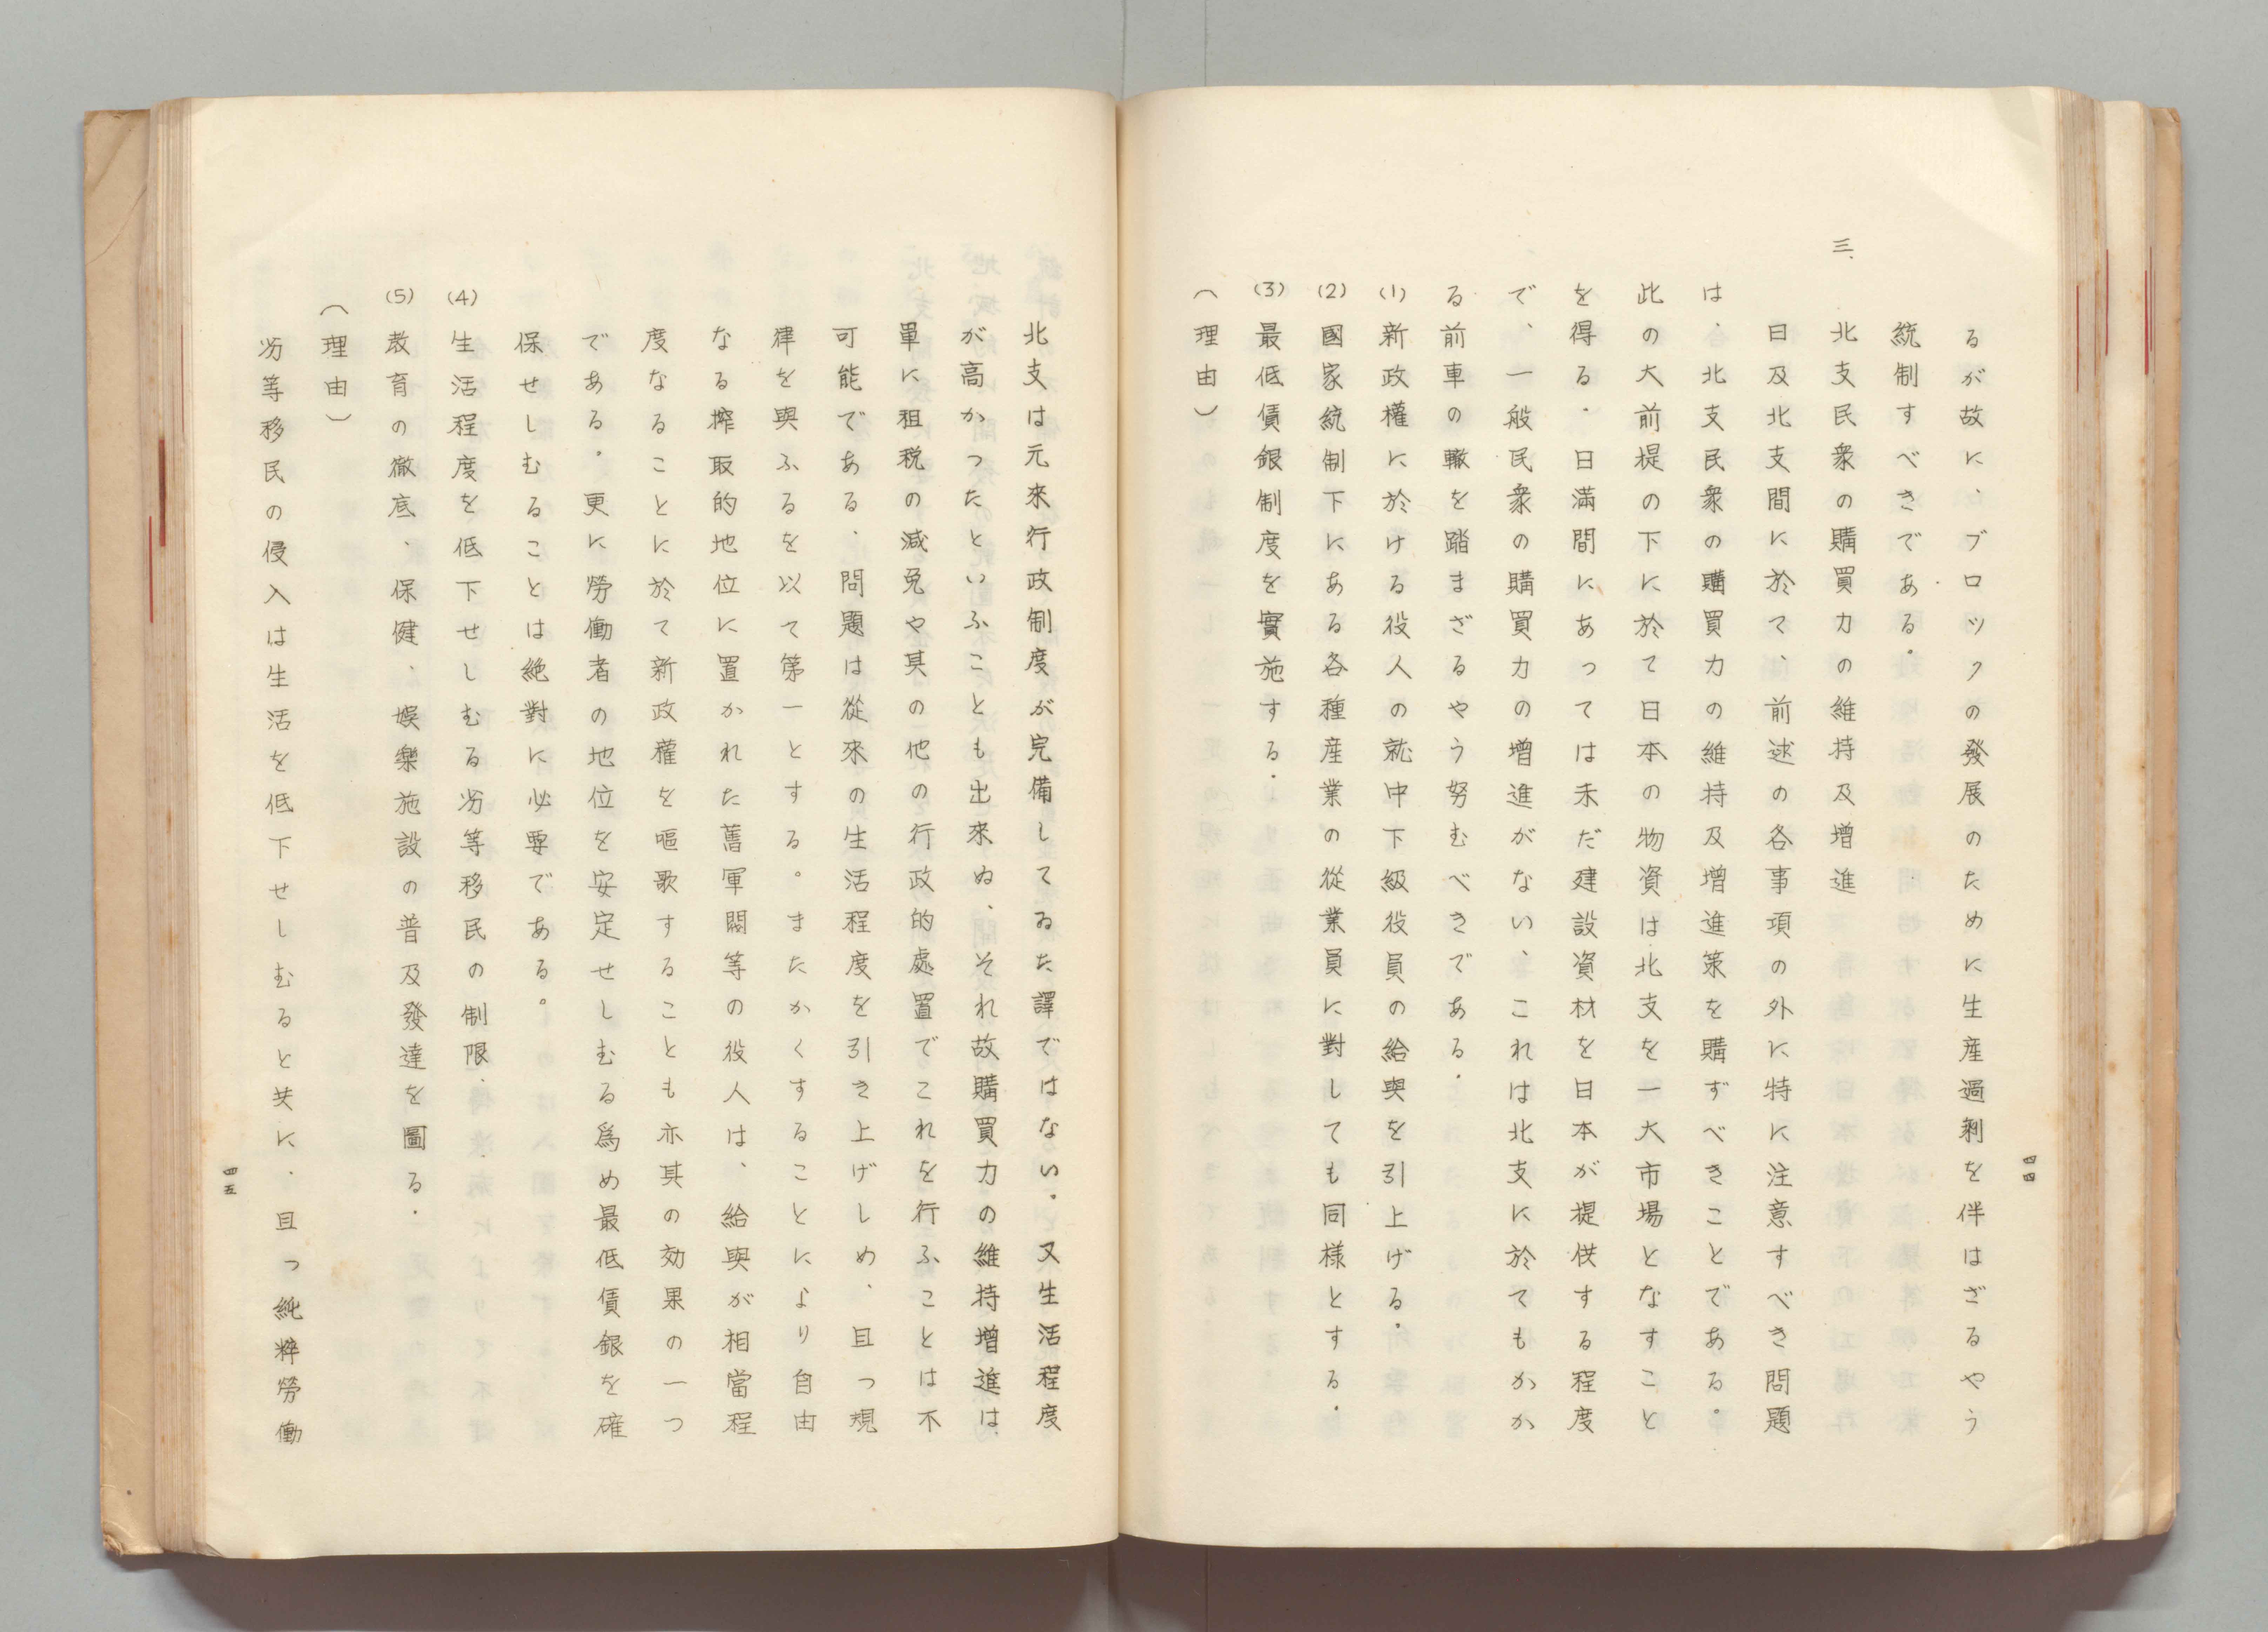 るが故に、ブロックの發展のために生産過剩を伴はざるやう
統制すべきである。
三、北支民衆の購買力の維持及増進
日及北支間に於て、前述の各事項の外に特に注意すべき問題
は、北支民衆の購買力の維持及増進策を購ずべきことである。
此の大前提の下に於て日本の物資は北支を一大市場となすこと
を得る。日滿間にあっては未だ建設資材を日本が提供する程度
で、一般民衆の購買力の増進がない、これは北支に於てもかか
る前車の轍を踏まざるやう努むべきである。
(1) 新政權に於ける役人の就中下級役員の給與を引上げる。
(2) 國家統制下にある各種産業の從業員に對しても同様とする。
(3) 最低賃銀制度を實施する。
（理由）
四四
北支は元來行政制度が完備してゐた譯ではない。又生活程度
が高かつたといふことも出來ぬ、それ故購買力の維持増進は、
單に租税の減免や其の他の行政的處置でこれを行ふことは不
可能である、問題は從來の生活程度を引き上げしめ、且つ規
律を與ふるを以て第一とする。またかくすることにより自由
なる搾取的地位に置かれた舊軍閥等の役人は、給與が相當程
度なることに於て新政權を嘔歌することも亦其の効果の一つ
である。更に勞働者の地位を安定せしむる爲め最低賃銀を確
保せしむることは絶對に必要である。
(4) 生活程度を低下せしむる劣等移民の制限。
(5) 教育の徹底、保健、娯樂施設の普及發達を圖る。
（理由）
劣等移民の侵入は生活を低下せしむると共に、且つ純粹勞働
四五